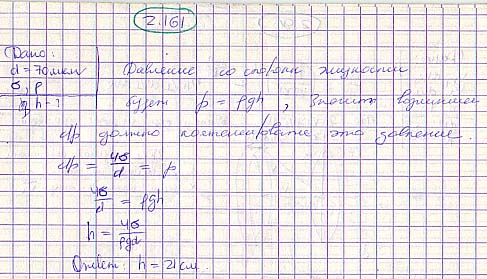 2.161
Дано:
d = 70 мкм
σ, ρ
h - ?
Давление со стороны жидкости
будет p = ρgh, значит возникшее
др должно компенсировать это давление.
др = 4σ/d = p
4σ/d = ρgh
h = 4σ/ρgd
Ответ: h = 21 см.